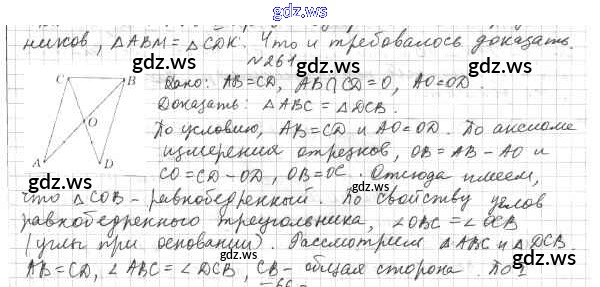 gdz.ws
ников, △ABM = △CDK. Что и требовалось доказать.
gdz.ws
№261
C B
Дано: AB=CD, AB∩CD=O, AO=OD.
gdz.ws
Доказать: △ABC = △DCB.
O
По условию, AB=CD и AO=OD. По аксиоме
измерения отрезков, OB = AB - AO и
A D
CO=CD-OD, OB=OC. Отсюда имеем,
gdz.ws
gdz.ws
что △COB - равнобедренный. По свойству углов
равнобедренного треугольника, ∠OBC = ∠OCB
gdz.ws
(углы при основании). Рассмотрим △ABC и △DCB.
AB=CD, ∠ABC = ∠DCB, CB - общая сторона. По
gdz.ws